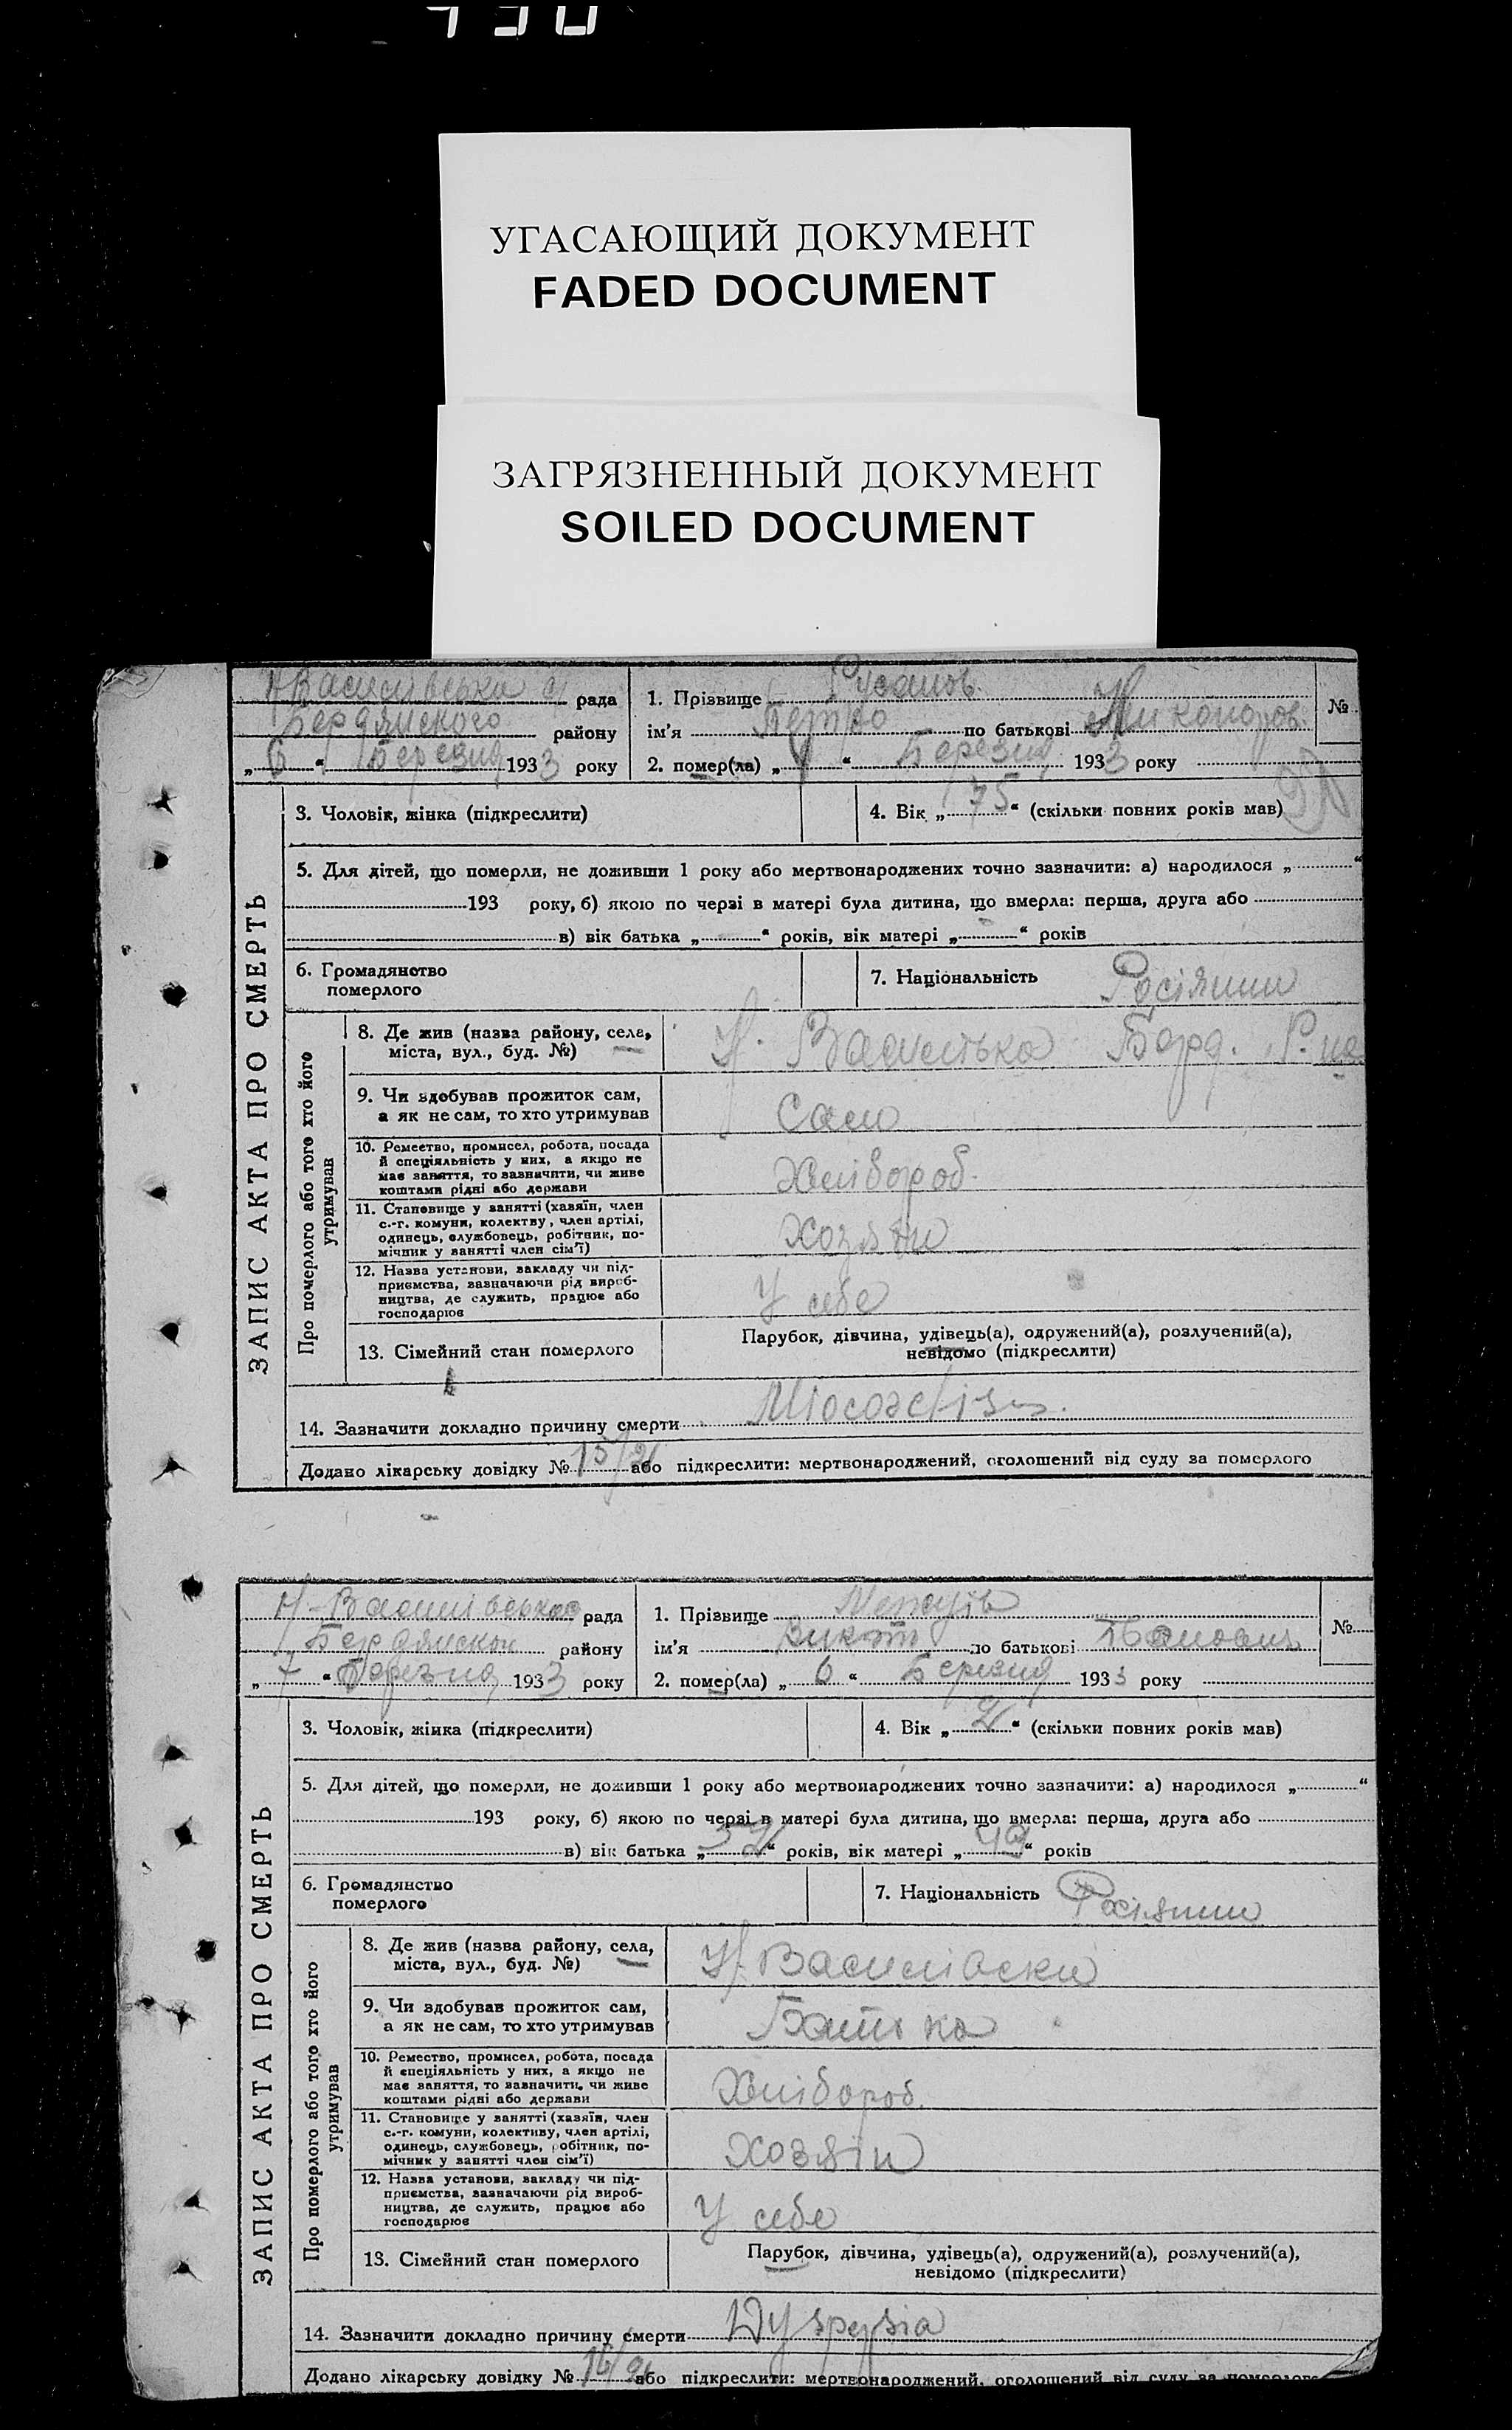 УГАСАЮЩИЙ ДОКУМЕНТ
FADED DOCUMENT
ЗАГРЯЗНЕННЫЙ ДОКУМЕНТ
SOILED DOCUMENT
ЗАПИС АКТА ПРО СМЕРТЬ
Н Василівська рада
Бердянского району
„6“ Березня 1933 року
1. Прізвище Русанов
ім'я Петро по батькові Никоноров.
№
2. помер(ла) „ “ Березня 1933 року
3. Чоловік, жінка (підкреслити)
4. Вік „75“ (скільки повних років мав)
5. Для дітей, що померли, не доживши 1 року або мертвонароджених точно зазначити: а) народилося „ “
193 року, б) якою по черзі в матері була дитина, що вмерла: перша, друга або
в) вік батька „ “ років, вік матері „ “ років
6. Громадянство
померлого
7. Національність Росіянин
Про померлого або того хто його
утримував
8. Де жив (назва району, села,
міста, вул., буд. №)
Н.
9. Чи здобував прожиток сам,
а як не сам, то хто утримував
Сам
10. Ремество, промисел, робота, посада
й спеціяльність у них, а якщо не
має заняття, то зазначити, чи живе
коштами рідні або держави
Хлібороб.
11. Становище у занятті (хазяїн, член
с.-г. комуни, колектву, член артілі,
одинець, службовець, робітник, по-
мічник у занятті член сім'ї)
Хозяін
12. Назва установи, закладу чи під-
приємства, зазначаючи рід вироб-
ництва, де служить, працює або
господарює
У себе
13. Сімейний стан померлого
Парубок, дівчина, удівець(а), одружений(а), розлучений(а),
невідомо (підкреслити)
14. Зазначити докладно причину смерти
Додано лікарську довідку № 15/2 або підкреслити: мертвонароджений, оголошений від суду за померлого
ЗАПИС АКТА ПРО СМЕРТЬ
Н-Василівська рада
району
„7“ Березня 1933 року
1. Прізвище
ім'я по батькові Іванович
№
2. помер(ла) „6“ Березня 1933 року
3. Чоловік, жінка (підкреслити)
4. Вік „2“ (скільки повних років мав)
5. Для дітей, що померли, не доживши 1 року або мертвонароджених точно зазначити: а) народилося „ “
193 року, б) якою по черзі в матері була дитина, що вмерла: перша, друга або
в) вік батька „52“ років, вік матері „ “ років
6. Громадянство
померлого
7. Національність Росіянин
Про померлого або того хто його
утримував
8. Де жив (назва району, села,
міста, вул., буд. №)
Н-Василівски
9. Чи здобував прожиток сам,
а як не сам, то хто утримував
Батько
10. Ремество, промисел, робота, посада
й спеціяльність у них, а якщо не
має заняття, то зазначити, чи живе
коштами рідні або держави
Хлібороб.
11. Становище у занятті (хазяїн, член
с.-г. комуни, колективу, член артілі,
одинець, службовець, робітник, по-
мічник у занятті член сім'ї)
Хозяін
12. Назва установи, закладу чи під-
приємства, зазначаючи рід вироб-
ництва, де служить, працює або
господарює
У себе
13. Сімейний стан померлого
Парубок, дівчина, удівець(а), одружений(а), розлучений(а),
невідомо (підкреслити)
14. Зазначити докладно причину смерти Dyspepsia
Додано лікарську довідку № 16/2 або підкреслити: мертвонароджений, оголошений від суду за померлого